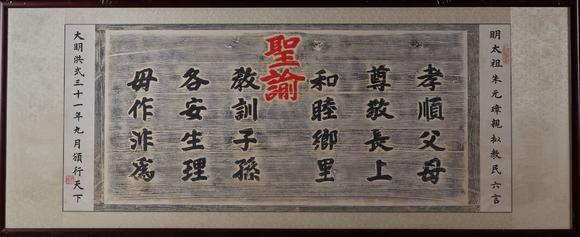 明太祖朱元璋親拟教民六言
聖諭
孝順父母
尊敬長上
和睦鄉里
教訓子孫
各安生理
毋作非為
大明洪武三十一年九月頒行天下